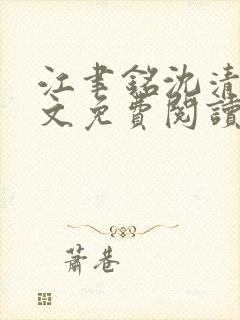 江聿銘沈清
文免費閱讀
蕭巷